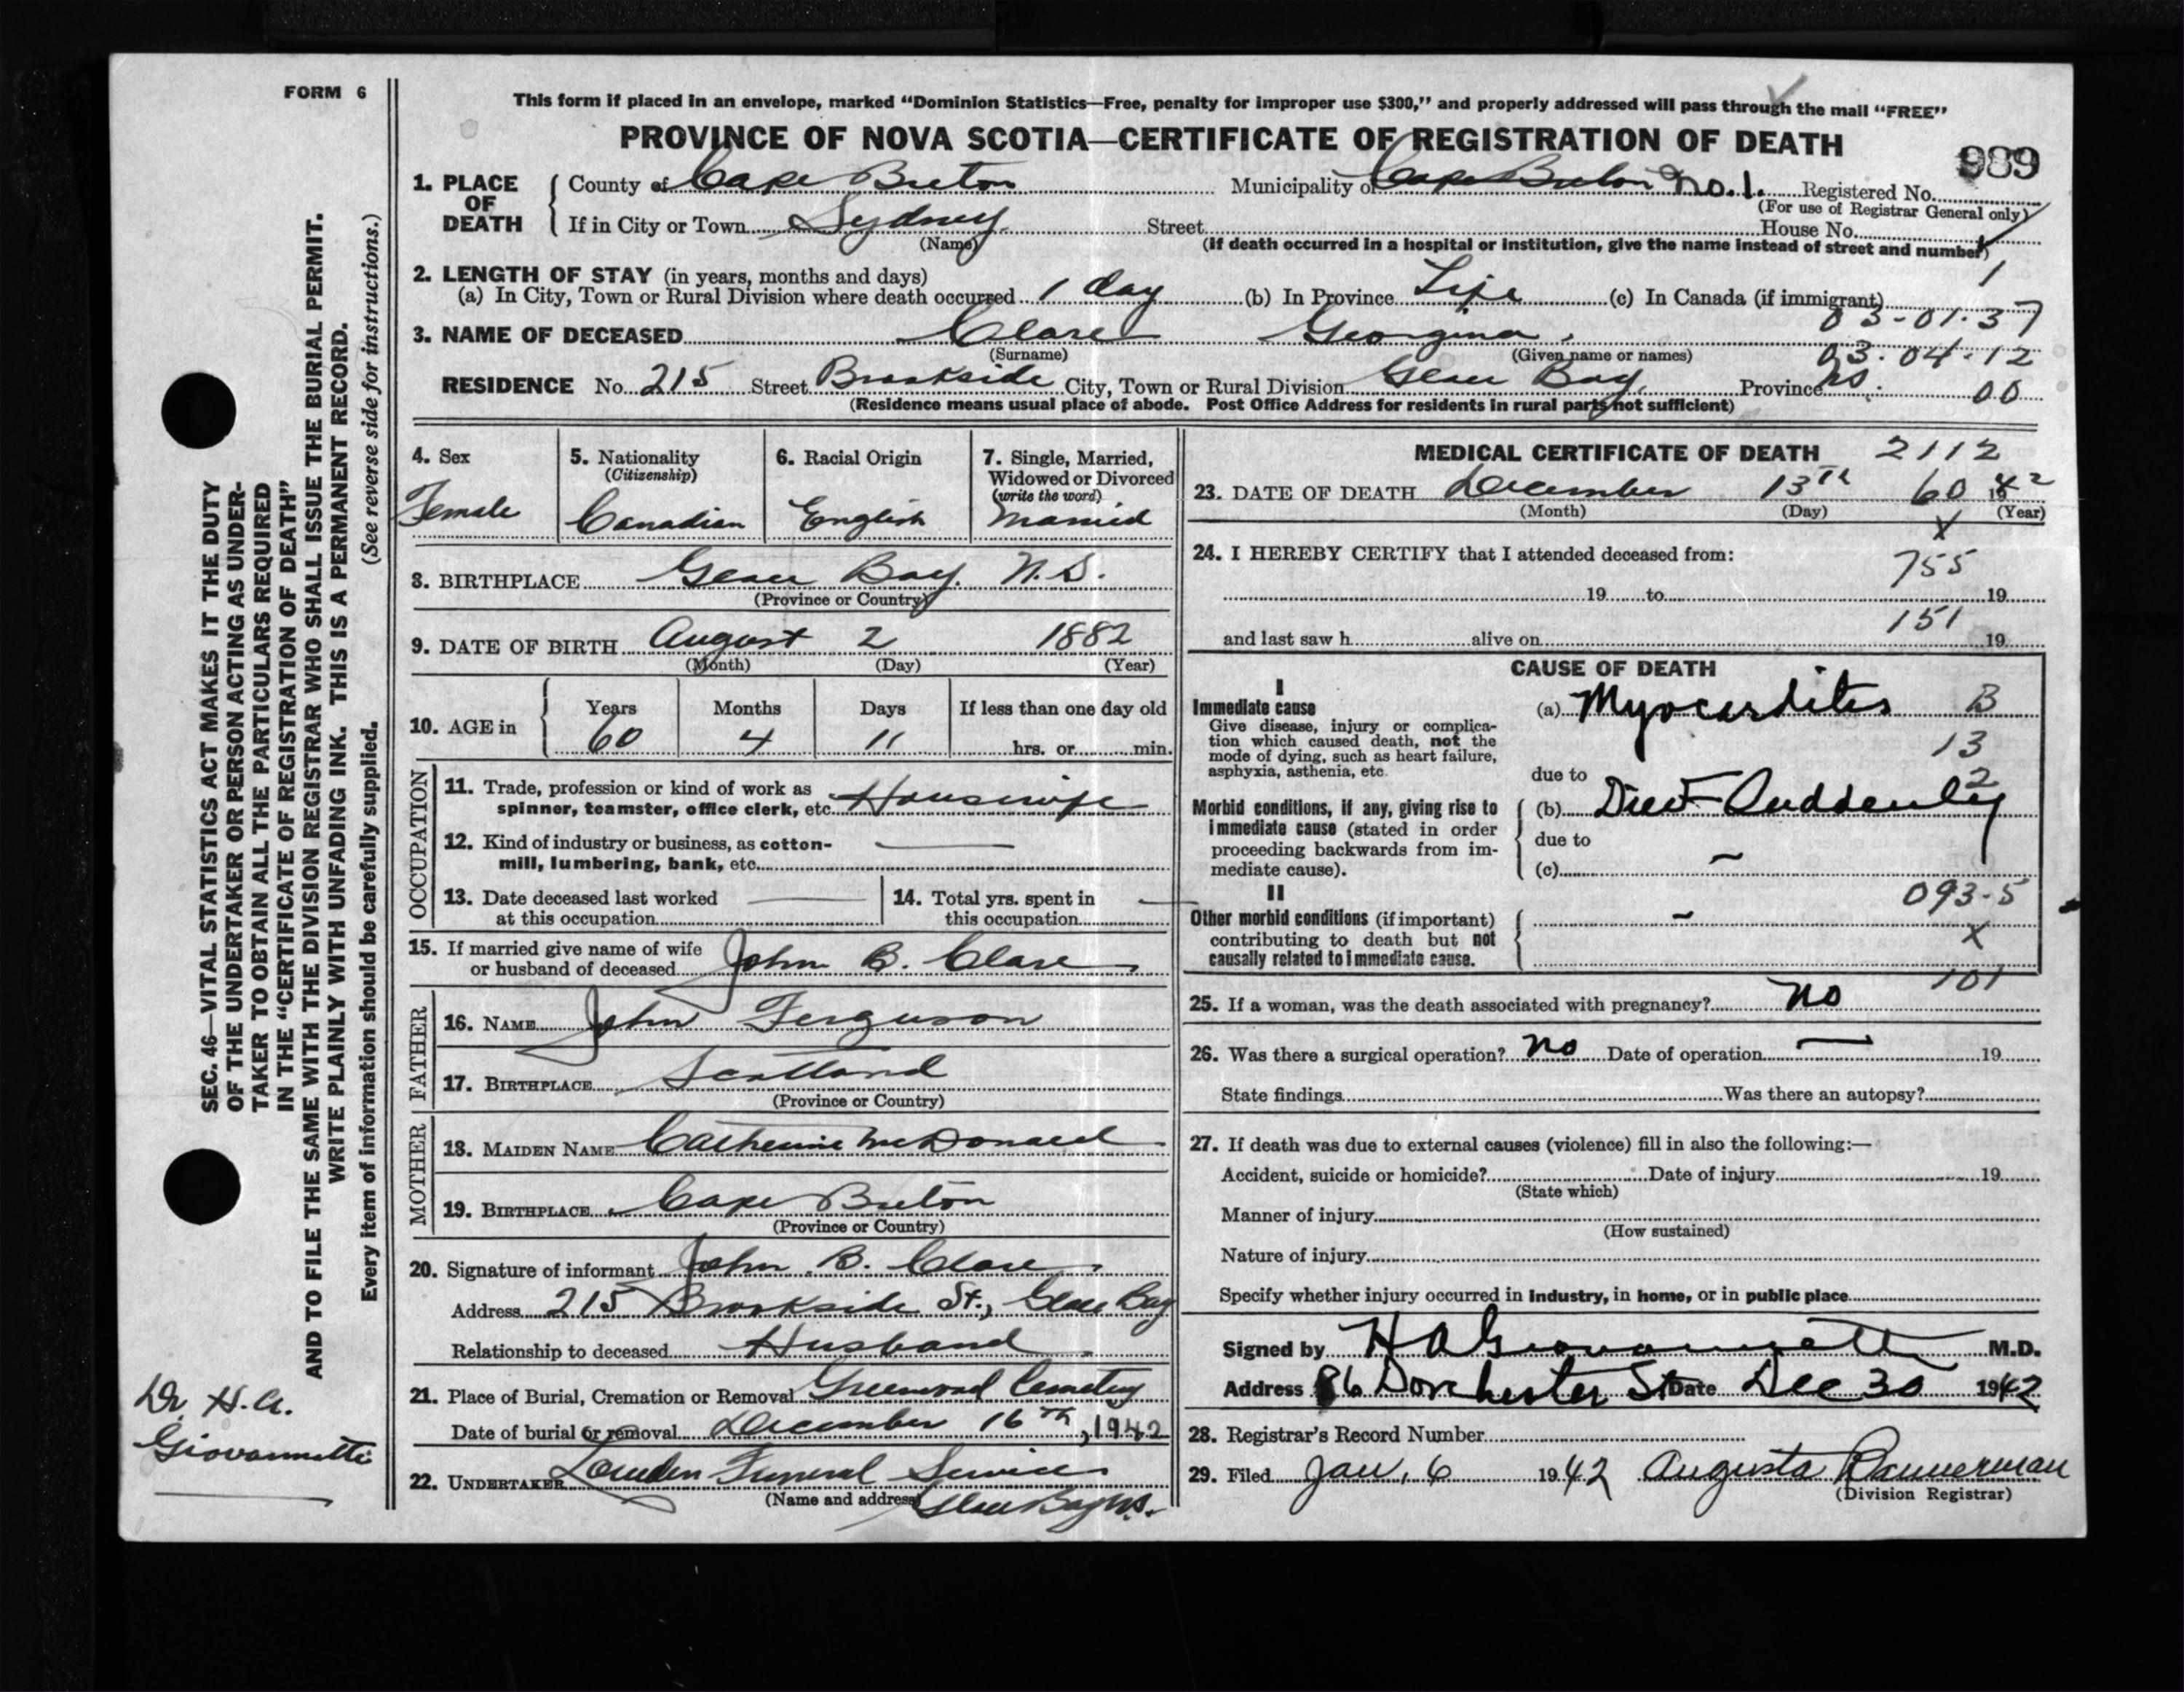 FORM 6
This form if placed in an envelope, marked "Dominion Statistics—Free, penalty for improper use $300," and properly addressed will pass through the mail "FREE"
PROVINCE OF NOVA SCOTIA—CERTIFICATE OF REGISTRATION OF DEATH
989
1. PLACE OF DEATH
County of Cape Breton Municipality of Cape Breton No. 1. Registered No.
(For use of Registrar General only)
If in City or Town Sydney Street House No.
(Name) (If death occurred in a hospital or institution, give the name instead of street and number)
2. LENGTH OF STAY (in years, months and days) 1
(a) In City, Town or Rural Division where death occurred 1 day (b) In Province Life (c) In Canada (if immigrant)
03-01-37
3. NAME OF DECEASED Clare Georgina
(Surname) (Given name or names) 03-04-12
RESIDENCE No. 215 Street Brookside City, Town or Rural Division Glace Bay Province NS. 00
(Residence means usual place of abode. Post Office Address for residents in rural parts not sufficient)
4. Sex
Female
5. Nationality
(Citizenship)
Canadian
6. Racial Origin
English
7. Single, Married, Widowed or Divorced
(write the word)
Married
8. BIRTHPLACE Glace Bay. N.S.
(Province or Country)
9. DATE OF BIRTH August 2 1882
(Month) (Day) (Year)
10. AGE in Years Months Days If less than one day old
60 4 11 hrs. or min.
OCCUPATION
11. Trade, profession or kind of work as
spinner, teamster, office clerk, etc. Housewife
12. Kind of industry or business, as cotton-
mill, lumbering, bank, etc.
13. Date deceased last worked
at this occupation
14. Total yrs. spent in
this occupation
15. If married give name of wife
or husband of deceased John B. Clare
FATHER
16. NAME John Ferguson
17. BIRTHPLACE Scotland
(Province or Country)
MOTHER
18. MAIDEN NAME Catherine McDonald
19. BIRTHPLACE Cape Breton
(Province or Country)
20. Signature of informant John B. Clare
Address 215 Brookside St., Glace Bay
Relationship to deceased Husband
21. Place of Burial, Cremation or Removal Greenwood Cemetery
Date of burial or removal December 16th, 1942
22. UNDERTAKER Louden Funeral Services
(Name and address) Glace Bay N.S.
MEDICAL CERTIFICATE OF DEATH 2112
23. DATE OF DEATH December 13th 60 1942
(Month) (Day) (Year)
X
24. I HEREBY CERTIFY that I attended deceased from:
755
19 to 19
151
and last saw h alive on 19
CAUSE OF DEATH
I
Immediate cause
Give disease, injury or complica-
tion which caused death, not the
mode of dying, such as heart failure,
asphyxia, asthenia, etc.
(a) Myocarditis B
13
due to
2
Morbid conditions, if any, giving rise to
immediate cause (stated in order
proceeding backwards from im-
mediate cause).
(b) Died Suddenly
due to
(c)
II
093-5
Other morbid conditions (if important)
contributing to death but not
causally related to immediate cause.
X
101
25. If a woman, was the death associated with pregnancy? No
26. Was there a surgical operation? No Date of operation 19
State findings Was there an autopsy?
27. If death was due to external causes (violence) fill in also the following:—
Accident, suicide or homicide? Date of injury 19
(State which)
Manner of injury
(How sustained)
Nature of injury
Specify whether injury occurred in industry, in home, or in public place
Signed by H A Giovannetti M.D.
Address 86 Dorchester St Date Dec 30 1942
28. Registrar's Record Number
29. Filed Jan. 6 1942 Augusta Bannerman
(Division Registrar)
SEC. 46—VITAL STATISTICS ACT MAKES IT THE DUTY
OF THE UNDERTAKER OR PERSON ACTING AS UNDER-
TAKER TO OBTAIN ALL THE PARTICULARS REQUIRED
IN THE "CERTIFICATE OF REGISTRATION OF DEATH"
AND TO FILE THE SAME WITH THE DIVISION REGISTRAR WHO SHALL ISSUE THE BURIAL PERMIT.
WRITE PLAINLY WITH UNFADING INK. THIS IS A PERMANENT RECORD.
Every item of information should be carefully supplied. (See reverse side for instructions.)
Dr. H.A.
Giovannetti